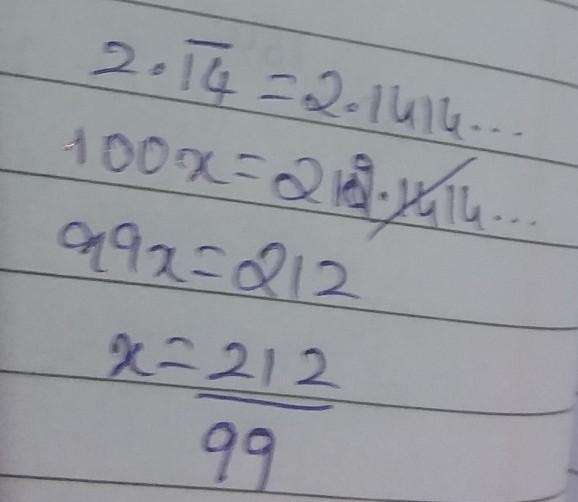 2.1̅4̅ = 2.1414...
100x = 212.1414...
99x = 212
x = 212
99